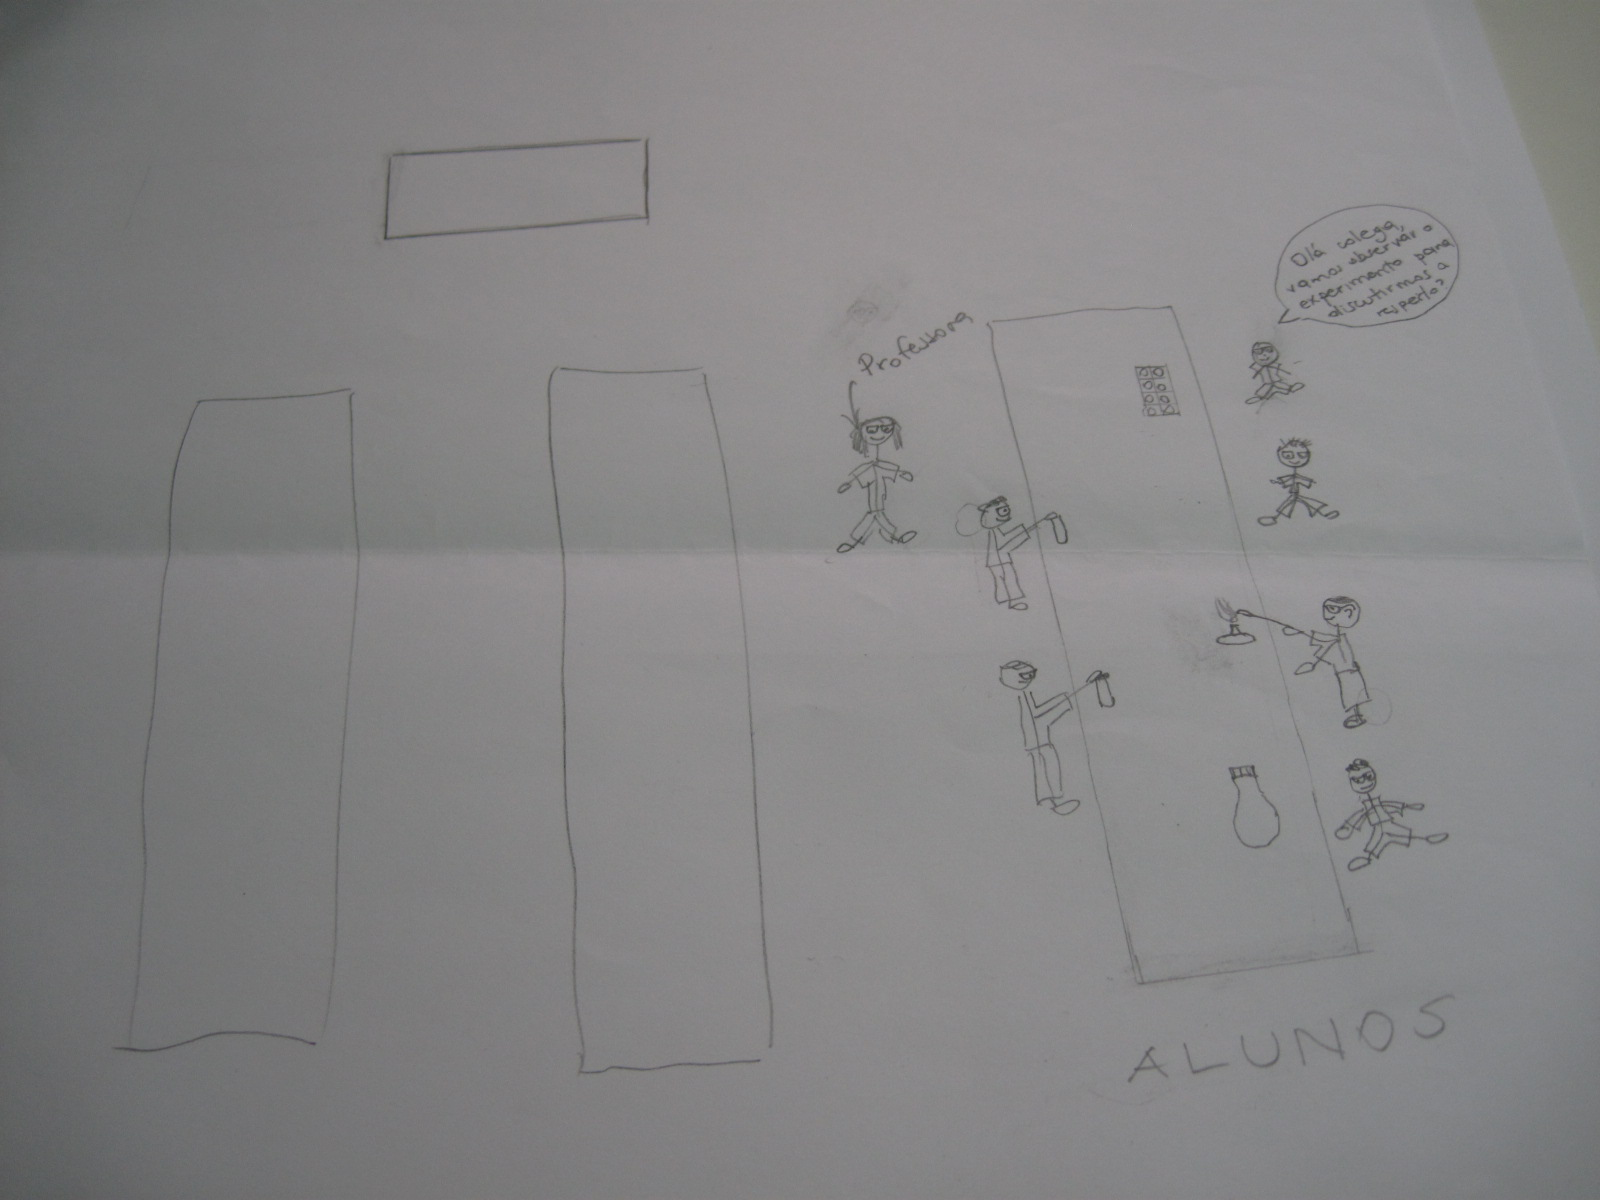 Olá colega,
vamos observar o
experimento para
discutirmos a
respeito?
Professora
ALUNOS